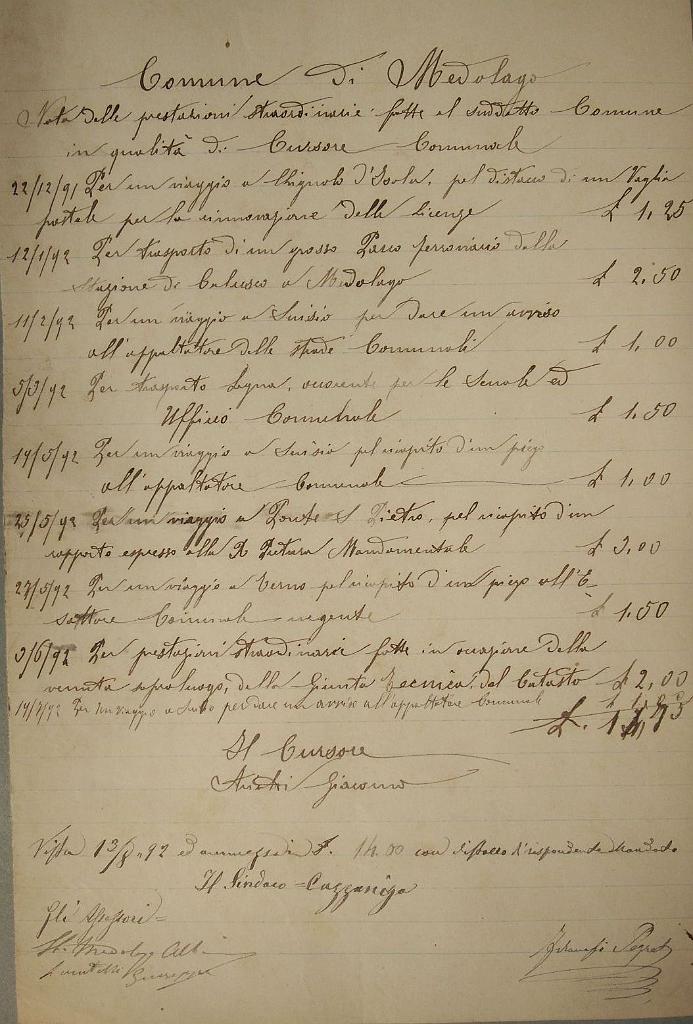 Comune di Medolago
Nota delle prestazioni straordinarie fatte al suddetto Comune
in qualità di Cursore Comunale
22/12/91 Per un viaggio a Chignolo d'Isola, pel distacco di un Vaglia
postale per la rinnovazione delle Licenze £ 1,25
12/1/92 Per trasporto di un grosso Pacco ferroviario dalla
Stazione di Calusco a Medolago £ 2.50
11/2/92 Per un viaggio a Suisio per dare un avviso
all'appaltatore delle strade Comunali £ 1,00
5/3/92 Per trasporto Legna, occorente per le Scuole ed
Ufficio Comunale £ 1.50
19/5/92 Per un viaggio a Suisio pel ricapito d'un piego
all'appaltatore Comunale £ 1.00
25/5/92 Per un viaggio a Ponte S Pietro, pel ricapito d'un
rapporto espresso alla R Pretura Mandamentale £ 3,00
27/5/92 Per un viaggio a Terno pel ricapito d'un piego all'E-
sattore Comunale urgente £ 1.50
3/6/92 Per prestazioni straordinarie fatte in occasione della
venuta sopraluogo, della Giunta tecnica del Catasto £ 2,00
Per un viaggio a Suisio per dare un avviso all'appaltatore Comunale
Il Cursore
Giacomo
Visto 13/8 92 14.00 con
Il Sindaco = Cazzaniga
Gli Assessori =
Medolago
Giuseppe